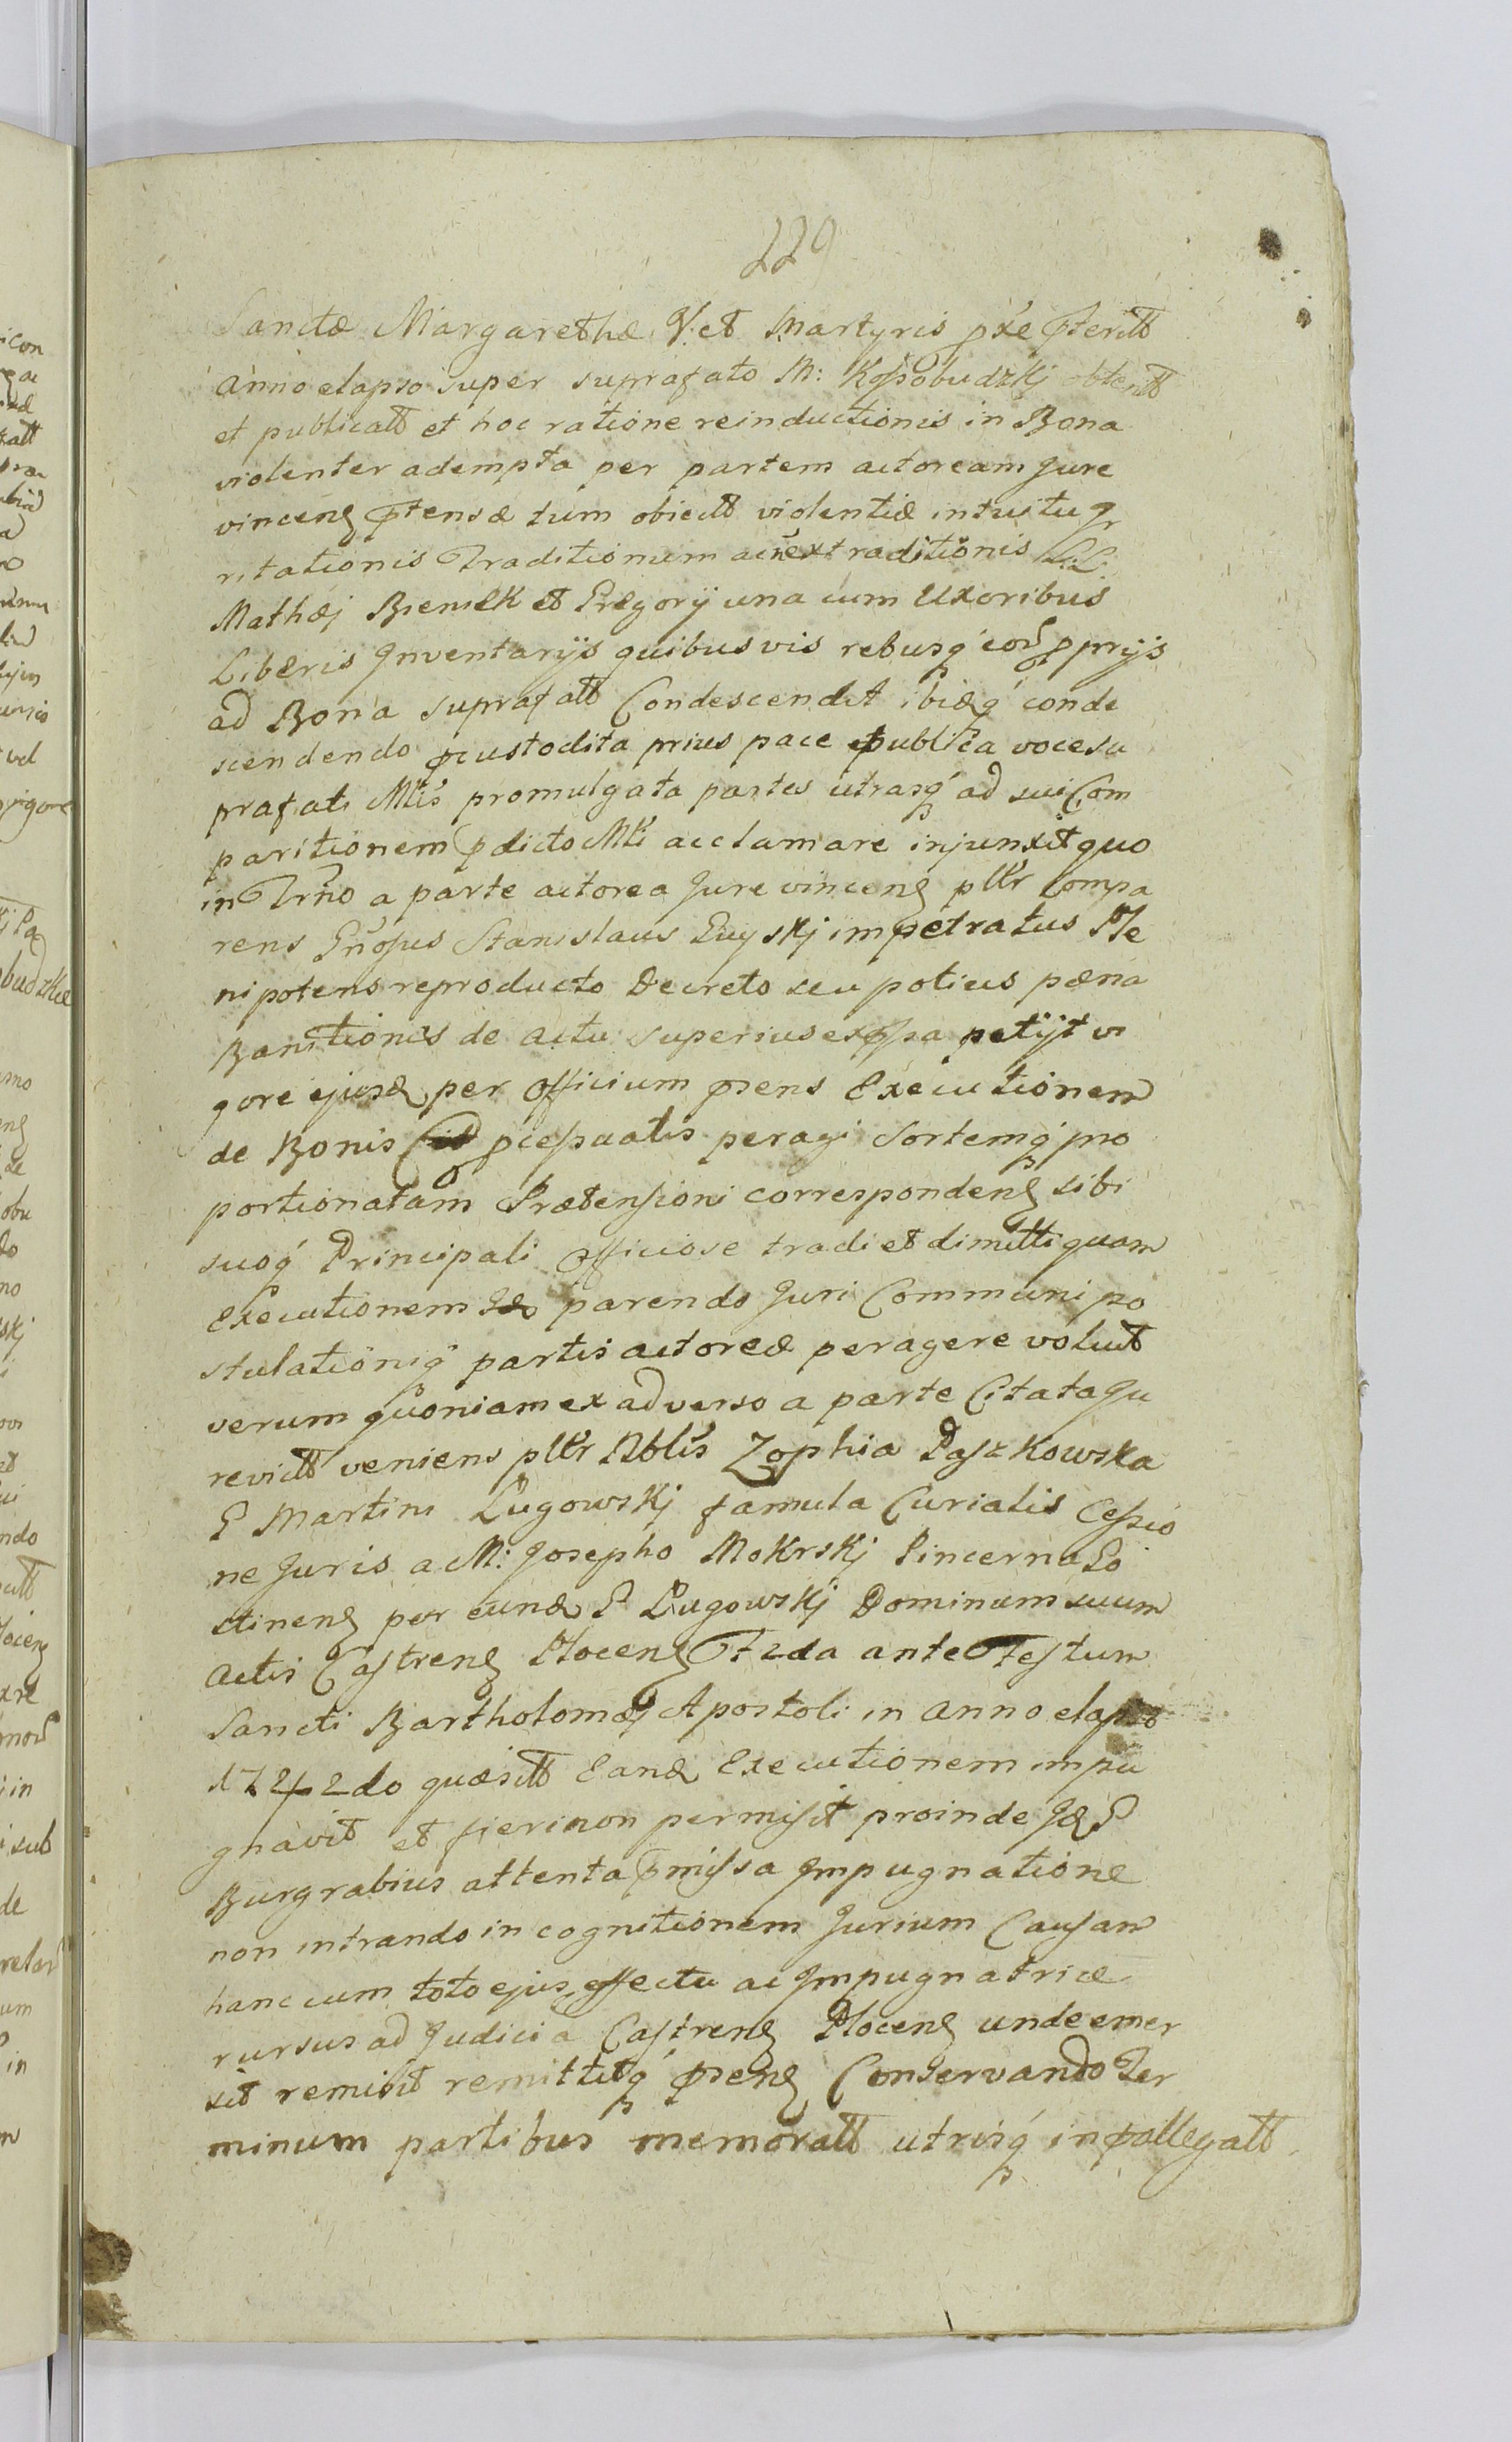 229
Sanctæ Margarethæ V. et Martyris pxe pteritt
anno elapso super suprafato M: Kossobudzkj obtentt
et publicatt et hoc ratione reinductionis in Bona
violenter adempta per partem actoream Jure
vincenš ptensæ tum obiectt violentiæ intuitu
ritationis Traditionum ac extraditionis LL
Mathæj Bieniek et Gregorij una cum Uxoribus
Liberis Inventarijs quibusvis rebusq́ eor pprijs
ad Bona suprafatt Condescendit ibidq́ conde
scendendo pcustodita prius pace publica voce su
prafati Mlis promulgata partes utrasq́ ad sui Com
paritionem pdicto Mli acclamare injunxit quo
in Trno a parte actorea Jure vincenš pltr Compa
rens Gnosus Stanislaus impetratus Ple
nipotens reproducto Decreto seu potius pæna
Banitionis de actu superius expssa petijt vi
gore ejusd per Officium psens Executionem
de Bonis pcessuatis peragi Sortemq́ pro
portionatam Prætensioni correspondenš sibi
suoq́ Principali officiose tradi et dimitti quam
Executionem Id parendo Juri Communi po
stulationiq́ partis actoreæ peragere voluit
verum quoniam ex adverso a parte Citata Ju
revictt veniens pltr Nblis Zophia Paszkowska
G Martini Lugowskj famula Curialis Cessio
ne Juris a M: Josepho Mokrskj Pincerna Go
stinenš per eund G Lugowskj Dominum suum
Actis Castrenš Plocenš F 2da ante Festum
Sancti Bartholomæj Apostoli in anno elapso
1742do quæsitt Eand Executionem impu
gnavit et fieri non permisit proinde Id G
Burgrabius attenta pmissa Impugnatione
non intrando in cognitionem Jurium Causam
hanc cum toto ejus effectu ac Impugnatrice
rursus ad Judicia Castrenš Plocenš unde emer
sit remisit remittitq́ psenš Conservando Ter
minum partibus memoratt utrisq́ in pallegatt